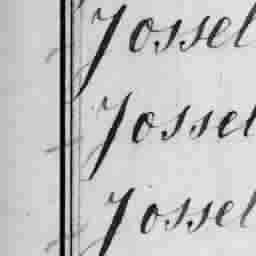 Jossel
Jossel
Jossel